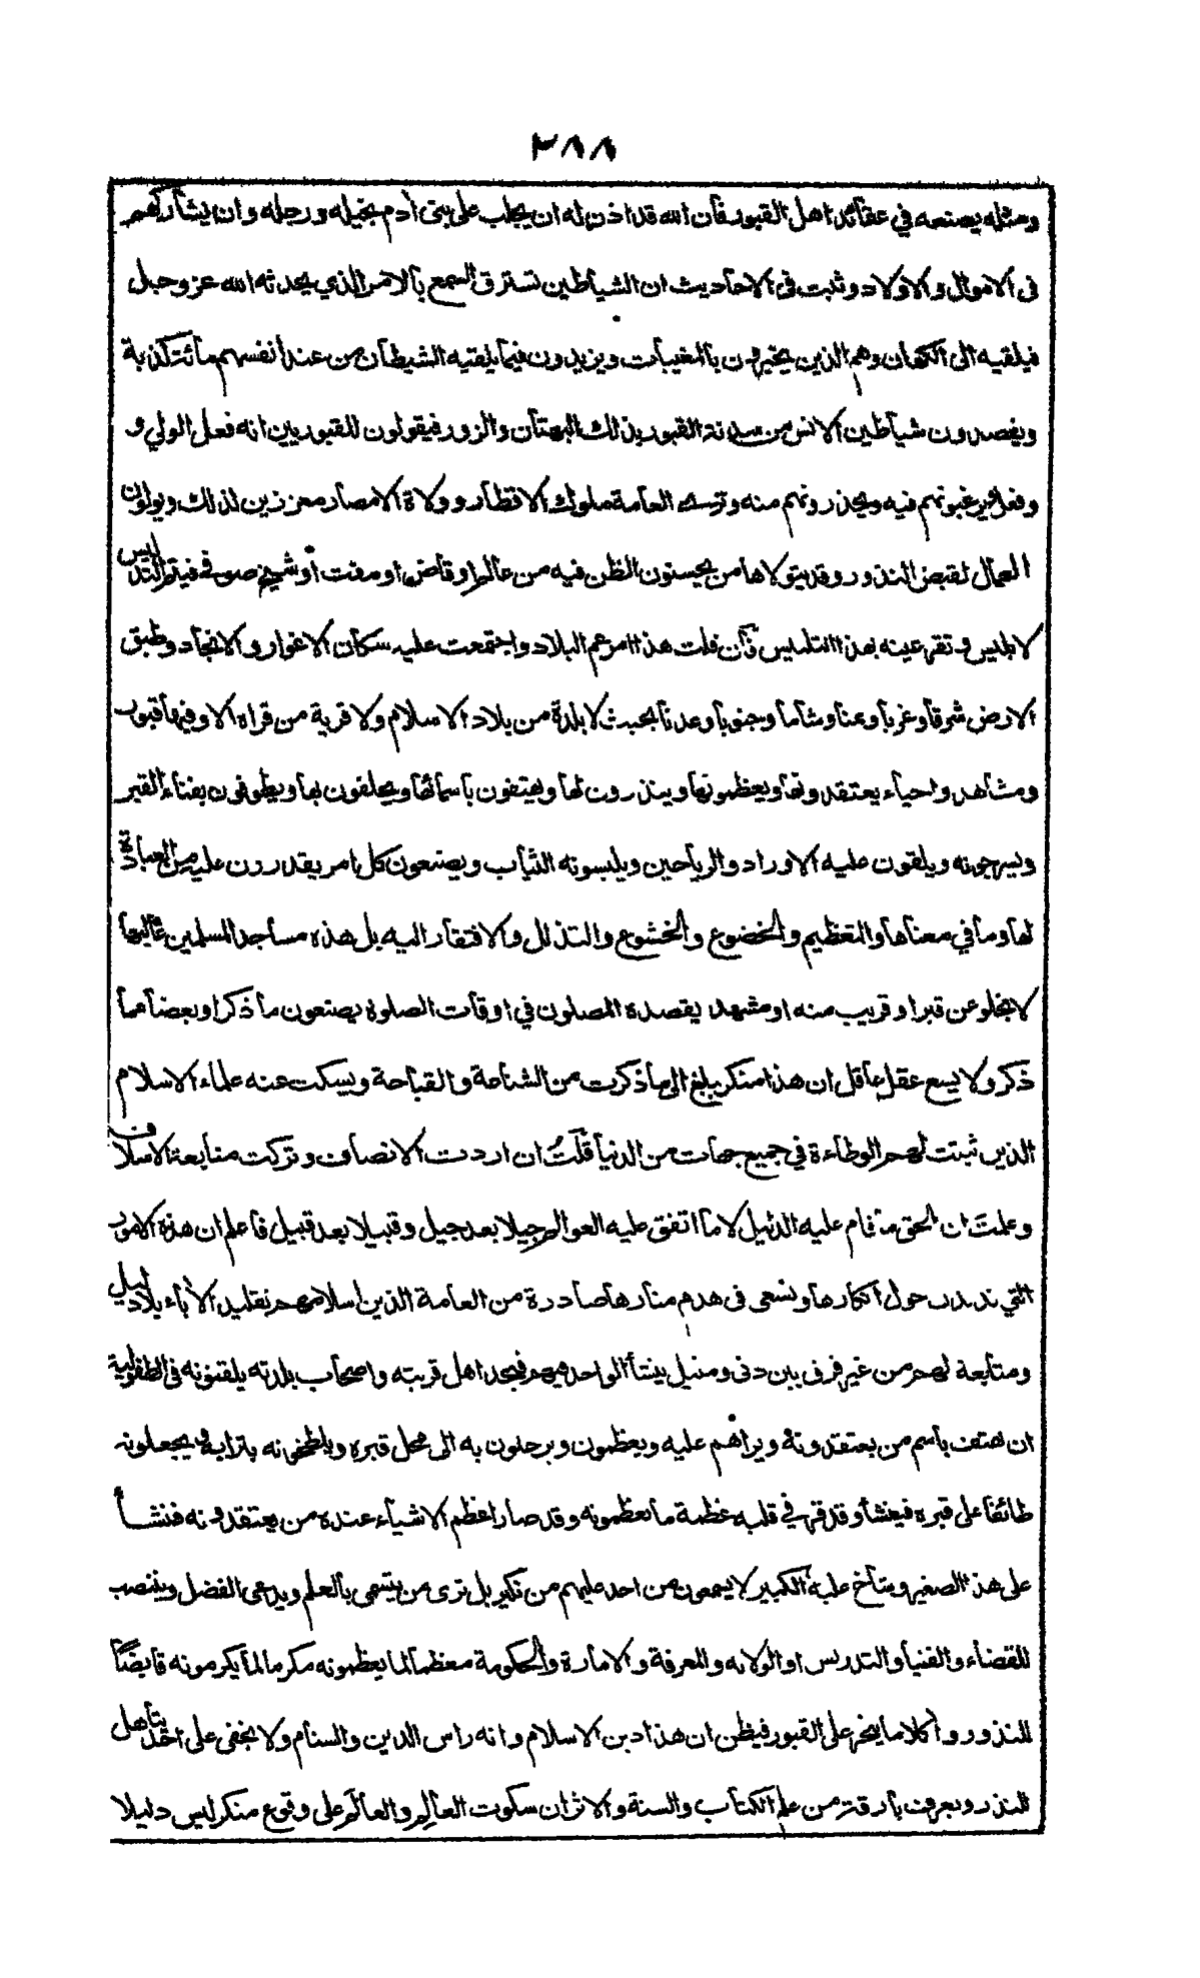 ٢٨٨
ومثله يصنعه في عقائد اهل القبور فان الله قد اذن له ان يجلب على بني آدم بخيله ورجله وان يشاركهم
في الاموال والاولاد وثبت في الاحاديث ان الشياطين تسترق السمع بالامر الذي يحدثه الله عز وجل
فيلقيه الى الكهان وهم الذين يخبرون بالمغيبات ويزيدون فيما يلقيه الشيطان من عند انفسهم مائة كذبة
ويقصدون شياطين الانس من سدنة القبور بذلك البهتان والزور فيقولون للقبوريين انه فعل الولي و
وفعل يرغبونهم فيه ويحذرونهم منه وترى العامة ملوك الاقطار وولاة الامصار معززين لذلك ويولون
العمال لقبض النذور وقد يتولاها من يحسنون الظن فيه من عالم او قاض او مفت او شيخ صوفي فيتم التدليس
لابليس وتقر عينه بهذا التلبيس فان قلت هذا امر عم البلاد واجتمعت عليه سكان الاغوار والانجاد وطبق
الارض شرقا وغربا ويمنا وشاما وجنوبا وعدنا بحيث لا بلدة من بلاد الاسلام ولا قرية من قراه الا وفيها قبور
ومشاهد واحياء يعتقدونها ويعظمونها وينذرون لها ويهتفون باسمائها ويحلفون بها ويطوفون بفناء القبر
ويسرجونه ويلقون عليه الاوراد والرياحين ويلبسونه الثياب ويصنعون كل امر يقدرون عليه من العبادة
لها وما في معناها والتعظيم والخضوع والخشوع والتذلل والافتقار اليه بل هذه مساجد المسلمين غالبها
لا يخلو عن قبر او قريب منه او مشهد يقصده المصلون في اوقات الصلوة يصنعون ما ذكر او بعضا مما
ذكر ولا يسع عقل عاقل ان هذا منكر يبلغ الى ما ذكرت من الشناعة والقباحة ويسكت عنه علماء الاسلام
الذين ثبتت لهم الوطاءة في جميع جهات من الدنيا قلتُ ان اردت الانصاف وتركت متابعة الاسلاف
وعلمتَ ان الحق ما قام عليه الدليل لا ما اتفق عليه العوالم جيلا بعد جيل وقبيلا بعد قبيل فاعلم ان هذه الامور
التي ندندن حول انكارها ونسعى في هدم منارها صادرة من العامة الذين اسلامهم تقليد الآباء بلا دليل
ومتابعة لهم من غير فرق بين دنى ومثيل ينشأ الواحد فيهم فيجد اهل قريته واصحاب بلدته يلقنونه في الطفولية
ان يهتف باسم من يعتقدونه ويراهم عليه ويعظمون ويرحلون به الى محل قبره ويلطخونه بترابه ويجعلونه
طائفا على قبره فينشأ وقد قر في قلبه عظمة ما يعظمونه وقد صار اعظم الاشياء عنده من يعتقدونه فنشأ
على هذا الصغير وشاخ عليه الكبير لا يسمعون من احد عليهم من نكير بل ترى من يتسمى بالعلم ويدعى الفضل وينتصب
للقضاء والفتيا والتدريس او الولاية والمعرفة والامارة والحكومة معظما لما يعظمونه مكرما لما يكرمونه قابضًا
للنذور واكلا ما ينحر على القبور فيظن ان هذا دين الاسلام وانه راس الدين والسنام ولا يخفى على احد يتأهل
للنذر ويعرف بارقة من علم الكتاب والسنة والاثر ان سكوت العالِم والعالَم على وقوع منكر ليس دليلا